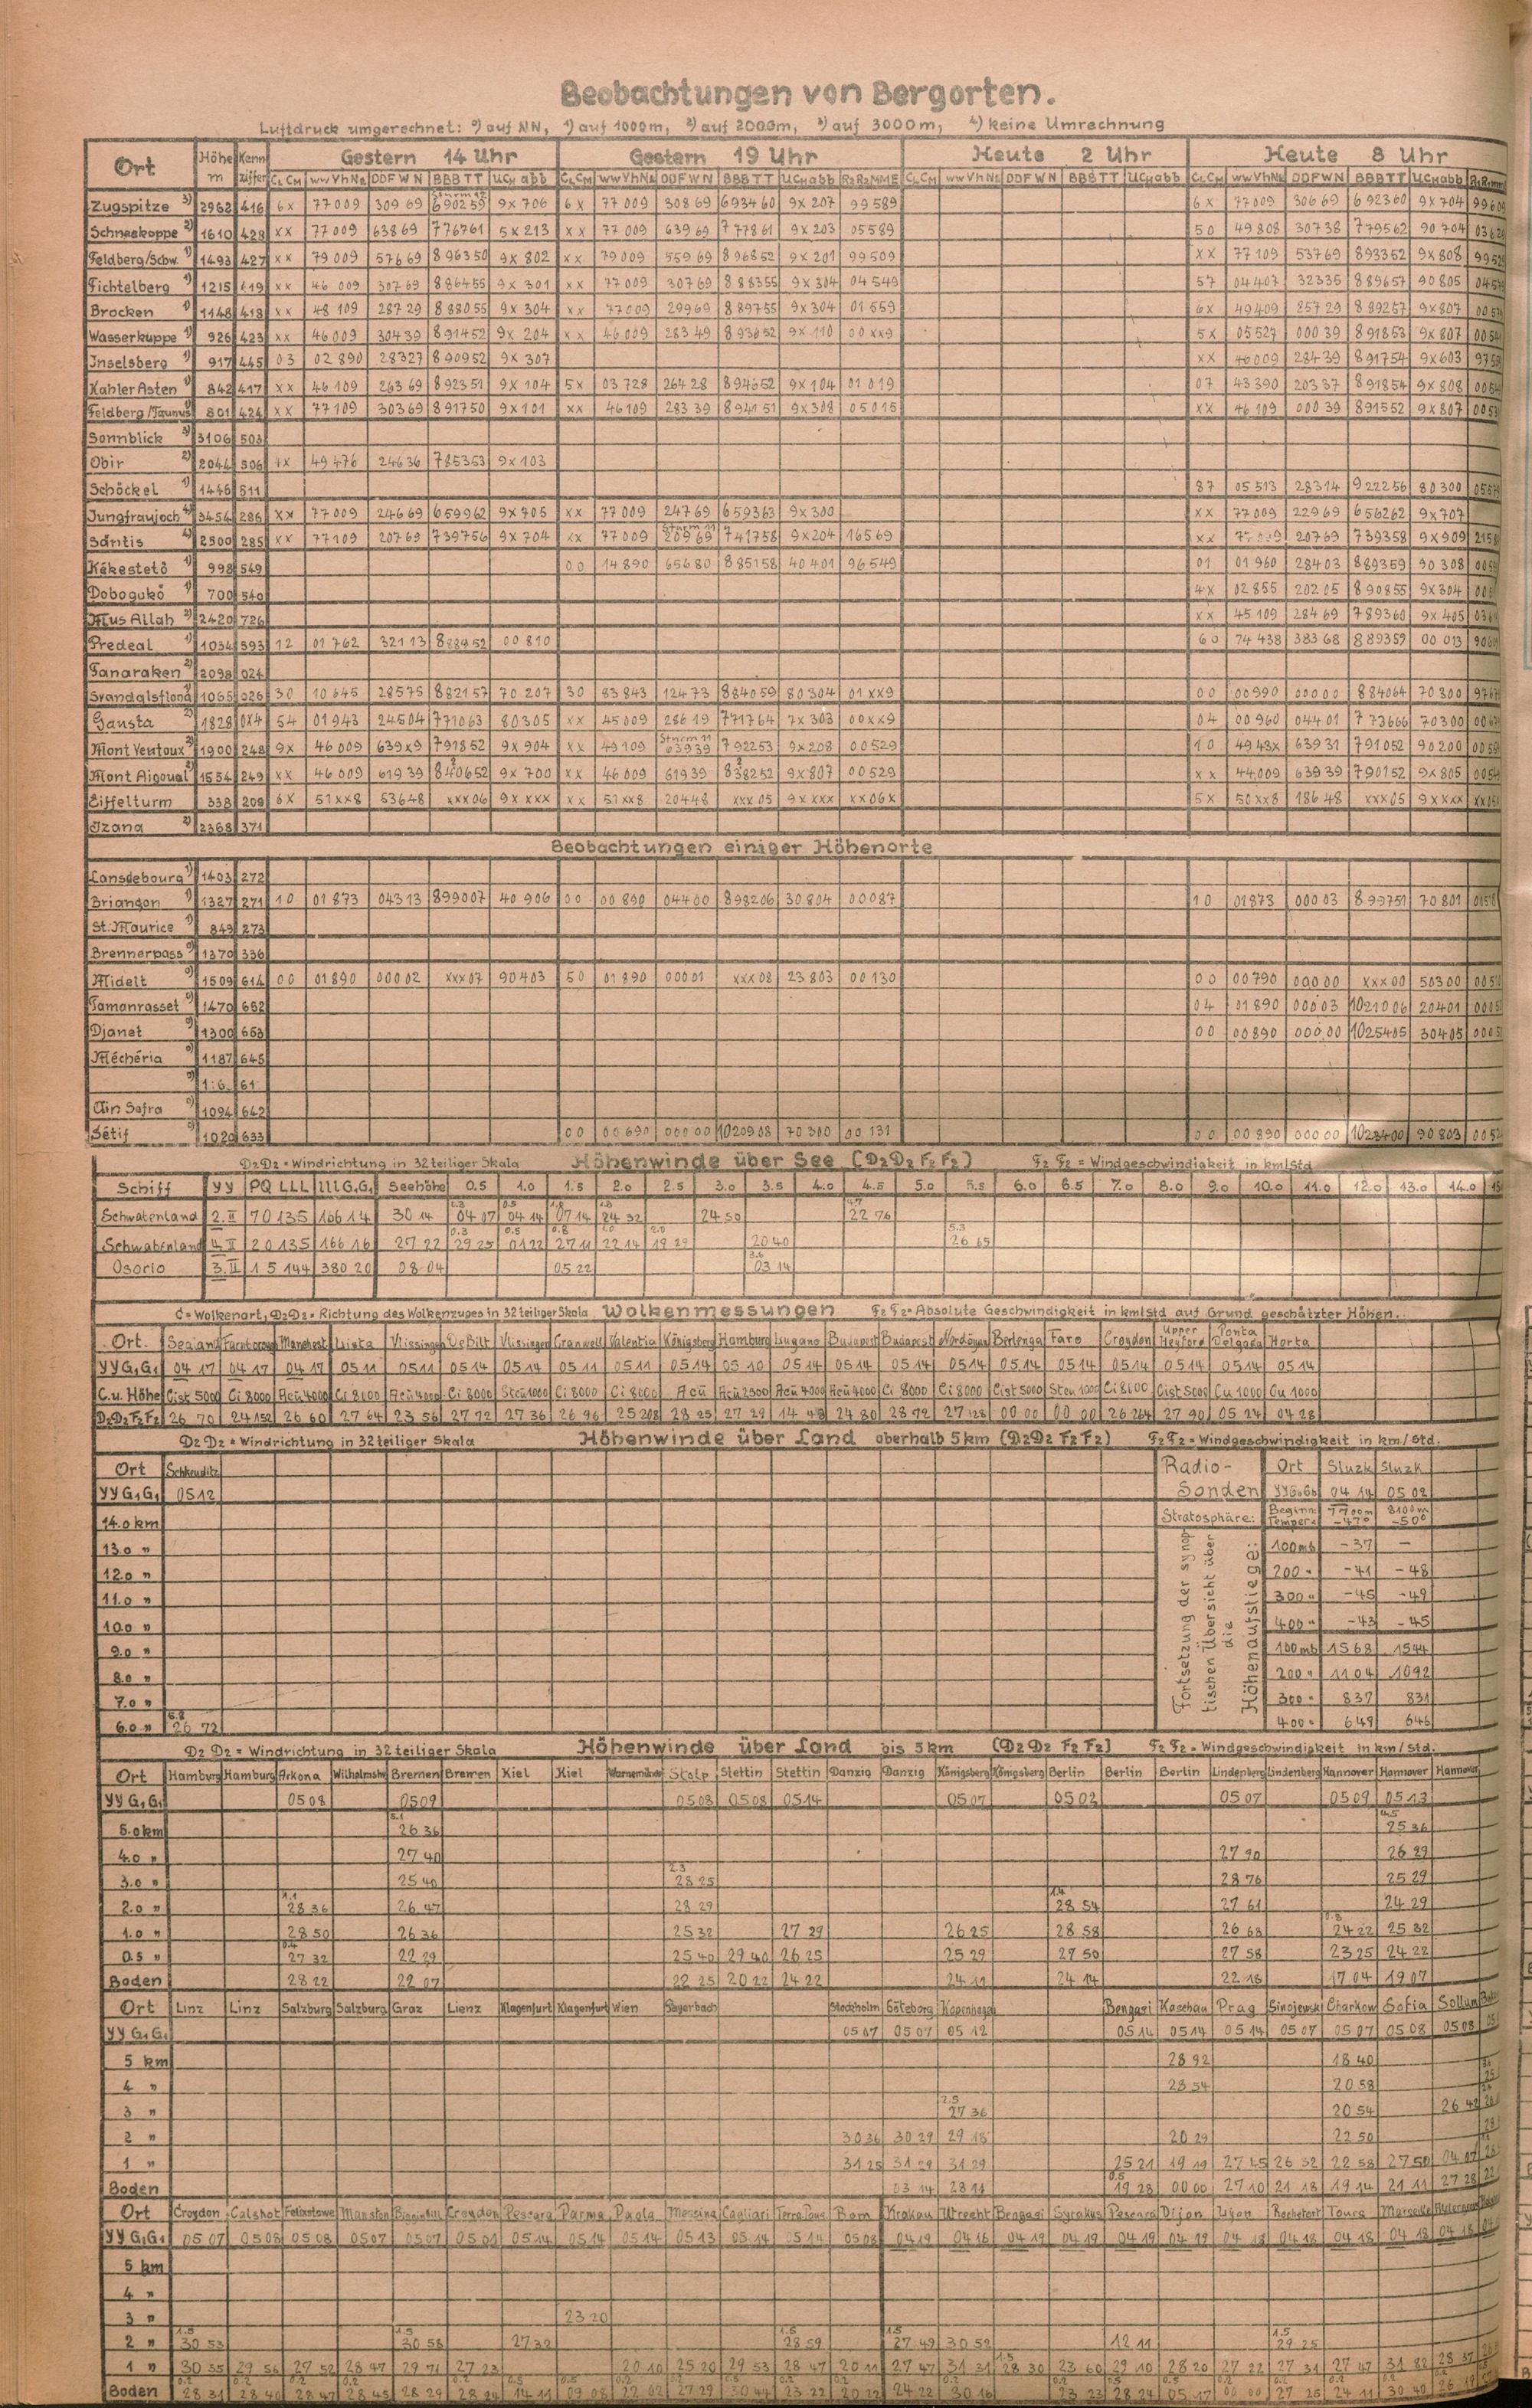 Beobachtungen von Bergorten.
Luftdruck umgerechnet: ⁰) auf NN, ¹) auf 1000m, ²) auf 2000m, ³) auf 3000m, ⁴) keine Umrechnung
Ort Höhe m Kennziffer Gestern 14 Uhr Gestern 19 Uhr Heute 2 Uhr Heute 8 Uhr
Zugspitze ³) 2962 416 6x 77009 30969 690259 9x 706 6x 77 009 308 69 693460 9x 207 99 589 6x 77009 30669 692360 9x704
Schneekoppe ²) 1610 428 xx 77009 63869 776761 5x213 xx 77 009 63969 777861 9x 203 05589 50 49808 30738 779562 90 704
Feldberg/Schw. ¹) 1493 427 xx 79 009 57669 896350 9x 802 xx 79009 55969 896852 9x 201 99509 xx 77109 53769 893352 9x808
Fichtelberg ¹) 1215 419 xx 46 009 30769 886455 9x 301 xx 77009 30769 888355 9x 304 04 549 57 04407 32335 889657 90805
Brocken ¹) 1148 418 xx 48 109 28729 888055 9x 304 xx 77009 29969 889755 9x304 01 559 6x 49409 25729 889257 9x807
Wasserkuppe ¹) 926 423 xx 46009 30439 891452 9x 204 xx 46009 28349 893652 9x 110 00xx9 5x 05527 00039 891853 9x 807
Inselsberg ¹) 917 445 03 02 890 28327 890952 9x 307 xx 46009 28439 891754 9x603
Kahler Asten ¹) 842 417 xx 46 109 26369 892351 9x 104 5x 03 728 26428 894652 9x104 01 019 07 43390 20337 891854 9x 808
Feldberg/Taunus ¹) 801 424 xx 77109 30369 891750 9x101 xx 46109 28339 894151 9x308 05015 xx 46 109 00039 891552 9x807
Sonnblick ³) 3106 503
Obir ²) 2044 506 49 476 24636 785353 9x103
Schöckel ¹) 1446 511 87 05 513 28314 922256 80300
Jungfraujoch ⁴) 3454 286 xx 77009 24669 659962 9x705 xx 77 009 24769 659363 9x300 xx 77009 22969 656262 9x707
Säntis 2500 285 xx 77109 20769 739756 9x 704 xx 77 009 Sturm 11 20969 741758 9x204 16569 xx 20769 739358 9x909
Kékestetö ¹) 998 549 00 14 890 65680 885158 40 401 96 549 01 01 960 28403 889359 90 308
Dobogukö ¹) 700 540 4x 02 855 20205 890855 9x304
Mus Allah ²) 2420 726 xx 45109 28469 789360 9x 405
Predeal ¹) 1034 593 12 01 762 32113 00 810 60 74 438 38368 889359 00 013
Fanaraken ²) 2098 024
Svandalsflona ¹) 1065 026 30 10 645 28575 882157 70 207 30 83 843 12473 884059 80304 01 xx9 00 00990 00000 884064 70300
Gausta ²) 1828 0x4 54 01943 24504 771063 80305 xx 45009 28619 771764 7x 303 00xx9 04 00 960 04401 773666 70300
Mont Ventoux ²) 1900 248 9x 46 009 639x9 791852 9x 904 xx 49109 Sturm 11 63939 792253 9x208 00529 10 4943x 63931 791052 90200
Mont Aigoual 1554 249 xx 46 009 61939 840652 9x 700 xx 46 009 61939 838252 9x807 00529 xx 44009 63939 790152 9x805
Eiffelturm 338 209 6x 51xx8 53648 xxx06 9x xxx xx 51xx8 20448 xxx 05 9x xxx xx06x 5x 50xx8 18648 xxx05 9xxxx
Izana ²) 2368 371
Beobachtungen einiger Höhenorte
Lansdebourg ¹) 1403 272
Briançon ¹) 1327 271 10 01 873 04313 899007 40 906 00 00 890 04400 898206 30 804 00087 10 01873 00003 899751 70 801
St. Maurice ¹) 849 273
Brennerpass 1370 336
Midelt ⁰) 1509 614 00 01890 00002 xxx07 90403 50 01890 00001 xxx 08 23 803 00 130 00 00790 00000 xxx00 50300
Tamanrasset ⁰) 1470 652 04 01890 00003 1021006 20401
Djanet ⁰) 1300 663 00 00890 00000 1025405 30405
Méchéria ⁰) 1187 645
Ain Sefra ⁰) 1094 642
Sétif ⁰) 1020 633 00 00 690 00000 1020908 70 300 00 131 00 00 890 00000 1023400 90 803
D₂D₂ = Windrichtung in 32 teiliger Skala Höhenwinde über See (D₂D₂ F₂F₂) F₂F₂ = Windgeschwindigkeit in km/Std
Schiff YY PQ LLL lllG₁G₁ Seehöhe 0.5 1.0 1.5 2.0 2.5 3.0 3.5 4.0 4.5 5.0 5.5 6.0 6.5 7.0 8.0 9.0 10.0 11.0 12.0 13.0 14.0
Schwabenland 2.II 70135 10614 30 14 04 07 04 14 07 14 24 32 24 50 22 76
Schwabenland 4.II 20135 16616 27 22 29 25 01 22 27 11 22 14 19 29 20 40 26 65
Osorio 3.II 15 144 380 20 08 04 05 22 03 14
C = Wolkenart, D₂D₂ = Richtung des Wolkenzuges in 32 teiliger Skala Wolkenmessungen F₂F₂ = Absolute Geschwindigkeit in km/Std auf Grund geschätzter Höhen.
Ort. Sealand Farnborough Manchest Lista Vlissingen De Bilt Vlissingen Cranwell Valentia Königsberg Hamburg Lugano Budapest Budapest Berlenga Faro Croydon Upper Heyford Ponta Delgada Horta
YYG₁G₁ 04 17 04 17 04 17 05 11 05 11 05 14 05 14 05 11 05 11 05 14 05 10 05 14 05 14 05 14 05 14 05 14 05 14 05 14 05 14 05 14 05 14
C.u. Höhe Cist 5000 Ci 8000 Acu 4000 Ci 8000 Acu 4000 Ci 8000 Stcu 1000 Ci 8000 Ci 8000 Acu Acu 2500 Acu 4000 Acu 4000 Ci 8000 Ci 8000 Cist 5000 Stcu 1000 Ci 8000 Cist 5000 Cu 1000 Cu 1000
D₂D₂F₂F₂ 26 70 24 152 26 60 27 64 23 56 27 72 27 36 26 96 25 208 28 25 27 29 14 48 24 80 28 72 27 128 00 00 00 00 26 264 27 90 05 24 04 28
D₂D₂ = Windrichtung in 32 teiliger Skala Höhenwinde über Land oberhalb 5 km (D₂D₂ F₂F₂) F₂F₂ = Windgeschwindigkeit in km/Std.
Ort Schkeuditz Radio-Sonden Ort Sluzk Sluzk
YYG₁G₁ 05 12 04 14 05 02
14.0 km Stratosphäre: Beginn: Temper: 7700m -47° 8100m -50°
Fortsetzung der synoptischen Übersicht über die Höhenaufstiege:
13.0 " 100mb -37 -
12.0 " 200 " -41 -48
11.0 " 300 " -45 -49
10.0 " 400 " -43 -45
9.0 " 100mb 1568 1544
8.0 " 200 " 1104 1092
7.0 " 300 " 837 831
6.0 " 26 72 400 " 649 646
D₂D₂ = Windrichtung in 32 teiliger Skala Höhenwinde über Land bis 5 km (D₂D₂ F₂F₂) F₂F₂ = Windgeschwindigkeit in km/Std.
Ort Hamburg Hamburg Arkona Wilhelmshv Bremen Bremen Kiel Kiel Warnemünde Stolp Stettin Stettin Danzig Danzig Königsberg Königsberg Berlin Berlin Berlin Lindenberg Lindenberg Hannover Hannover Hannover
YYG₁G₁ 05 08 05 09 05 08 05 08 05 14 05 07 05 02 05 07 05 09 05 13
5.0 km 26 36 25 36
4.0 " 27 40 27 90 26 29
3.0 " 25 40 28 25 28 76 25 29
2.0 " 28 36 26 47 28 29 28 54 27 61 24 29
1.0 " 28 50 26 36 25 32 27 29 26 25 28 58 26 68 24 22 25 32
0.5 " 27 32 22 29 25 40 29 40 26 25 25 29 27 50 27 58 23 25 24 22
Boden 28 22 22 07 22 25 20 22 24 22 24 11 24 14 22 18 17 04 19 07
Ort Linz Linz Salzburg Salzburg Graz Lienz Klagenfurt Klagenfurt Wien Payerbach Stockholm Göteborg Kopenhagen Bengasi Kaschau Prag Sinojewsk Charkow Sofia Sollum
YYG₁G₁ 05 07 05 07 05 12 05 14 05 14 05 14 05 07 05 07 05 08 05 08
5 km 28 92 18 40
4 " 28 54 20 58
3 " 27 36 20 54 26 42
2 " 30 36 30 29 29 18 20 29 22 50
1 " 31 25 31 29 31 29 25 21 19 19 27 45 26 32 22 58 27 50 04 07
Boden 03 14 28 14 19 28 00 00 27 10 21 18 19 14 21 11 27 28
Ort Croydon Calshot Felixstowe Manston Bigginhill Croydon Pescara Parma Paola Messina Cagliari Rom Krakau Utrecht Bengasi Syrakus Pescara Dijon Lyon Rochefort Tours Marseille
YYG₁G₁ 05 07 05 08 05 08 05 07 05 07 05 01 05 14 05 14 05 14 05 13 05 14 05 14 05 08 04 19 04 16 04 19 04 19 04 19 04 19 04 18 04 18 04 18 04 18 04 18
5 km
4 "
3 " 23 20
2 " 30 53 30 58 27 32 28 59 27 49 30 52 12 11 29 25
1 " 30 35 29 56 27 52 28 47 29 71 27 23 20 10 25 20 29 53 28 47 20 11 27 47 31 31 28 30 23 60 29 10 28 20 27 22 27 31 27 47 31 82 28 57
Boden 28 31 28 40 28 47 28 45 28 29 28 24 14 11 09 08 22 02 27 29 30 44 23 22 20 22 24 22 30 16 23 23 28 24 05 17 00 00 27 25 24 11 30 40